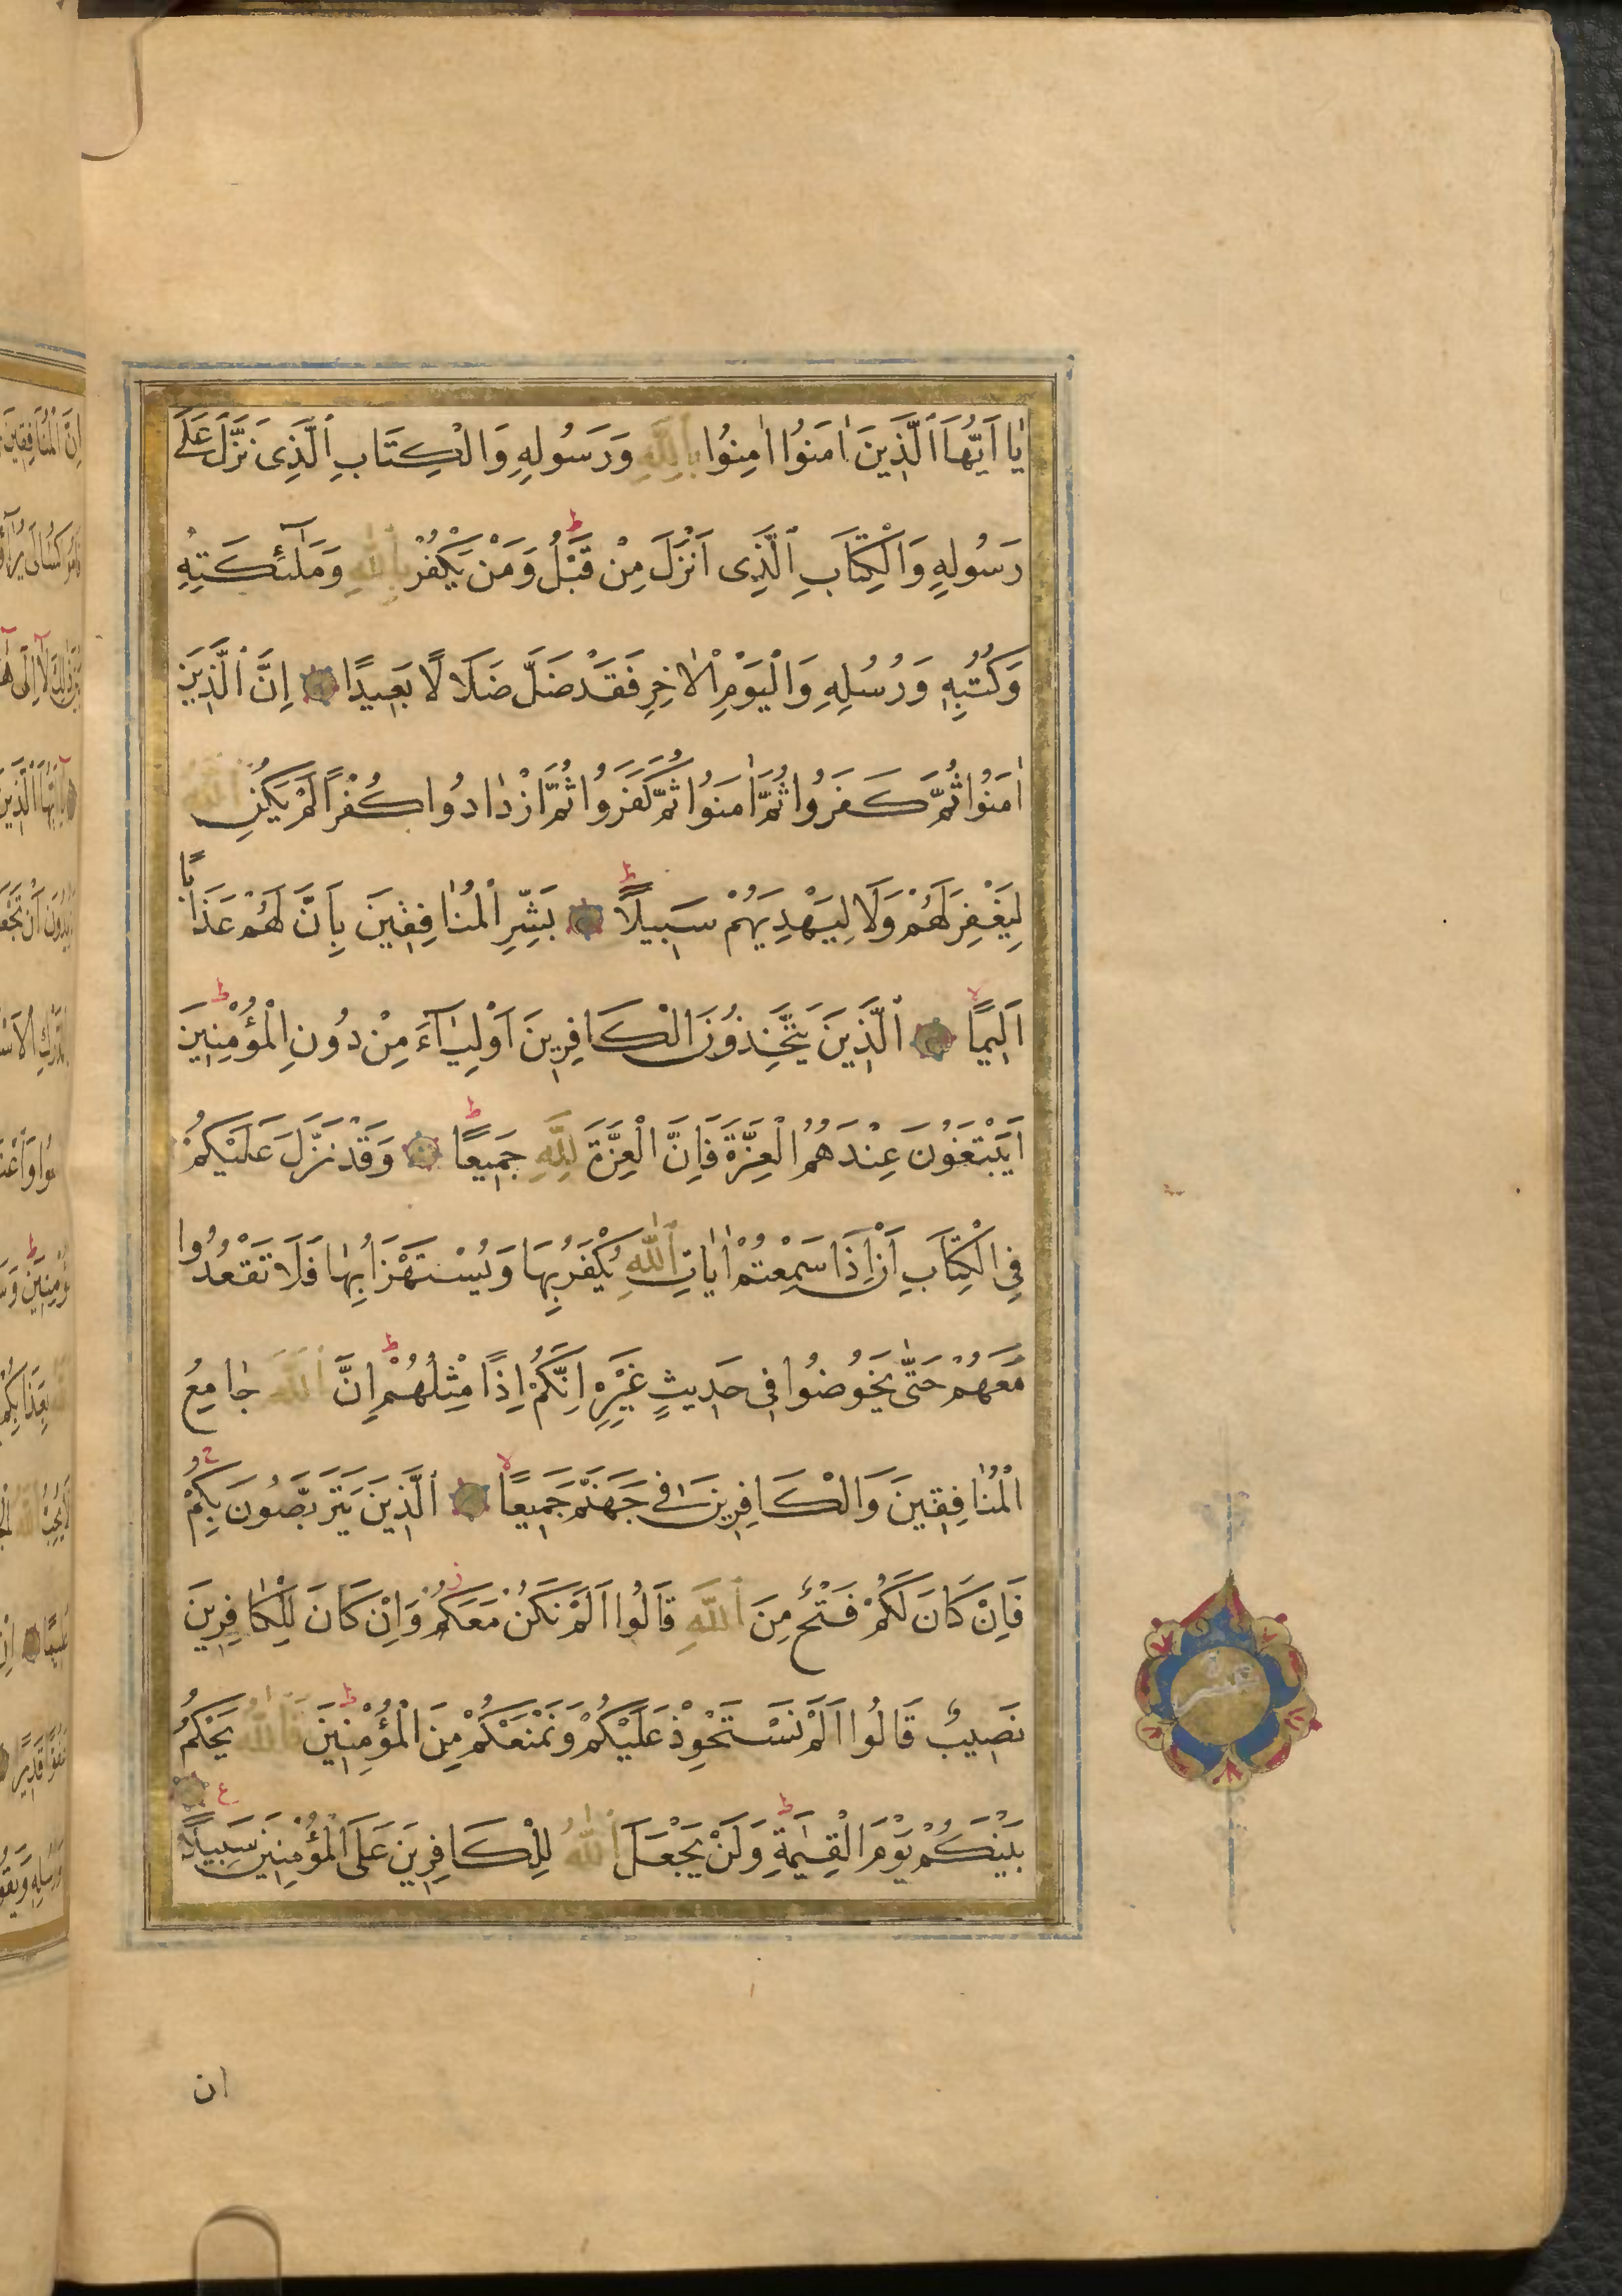 يٰا اَيُّهَا الَّذِينَ اٰمَنُوا اٰمِنُوا بِاللّٰهِ وَرَسُولِهِ وَالْكِتَابِ الَّذِى نَزَّلَ عَلٰى
رَسُولِهِ وَالْكِتَابِ الَّذِى اَنْزَلَ مِنْ قَبْلُ ط وَمَنْ يَكْفُرْ بِاللّٰهِ وَمَلٰٓئِكَتِهِ
وَكُتُبِهِ وَرُسُلِهِ وَالْيَوْمِ الْاٰخِرِ فَقَدْ ضَلَّ ضَلَالًا بَعِيدًا اِنَّ الَّذِينَ
اٰمَنُوا ثُمَّ كَفَرُوا ثُمَّ اٰمَنُوا ثُمَّ كَفَرُوا ثُمَّ ازْدٰادُوا كُفْرًا لَمْ يَكُنِ اللّٰهُ
لِيَغْفِرَ لَهُمْ وَلَا لِيَهْدِيَهُمْ سَبِيلًا ط بَشِّرِ الْمُنٰافِقِينَ بِاَنَّ لَهُمْ عَذَابًا
اَلِيمًا لا الَّذِينَ يَتَّخِذُونَ الْكَافِرِينَ اَوْلِيٰٓاءَ مِنْ دُونِ الْمُؤْمِنِينَ ط
اَيَبْتَغُونَ عِنْدَهُمُ الْعِزَّةَ فَاِنَّ الْعِزَّةَ لِلّٰهِ جَمِيعًا ط وَقَدْ نَزَّلَ عَلَيْكُمْ
فِى الْكِتَابِ اَنْ اِذَا سَمِعْتُمْ اٰيٰاتِ اللّٰهِ يُكْفَرُ بِهَا وَيُسْتَهْزَاُ بِهٰا فَلَا تَقْعُدُوا
مَعَهُمْ حَتّٰى يَخُوضُوا فِى حَدِيثٍ غَيْرِهِ اِنَّكُمْ اِذًا مِثْلُهُمْ ط اِنَّ اللّٰهَ جٰامِعُ
الْمُنٰافِقِينَ وَالْكَافِرِينَ فِى جَهَنَّمَ جَمِيعًا لا الَّذِينَ يَتَرَبَّصُونَ بِكُمْ ج
فَاِنْ كَانَ لَكُمْ فَتْحٌ مِنَ اللّٰهِ قَالُوا اَلَمْ نَكُنْ مَعَكُمْ ز وَاِنْ كَانَ لِلْكٰافِرِينَ
نَصِيبٌ قَالُوا اَلَمْ نَسْتَحْوِذْ عَلَيْكُمْ وَنَمْنَعْكُمْ مِنَ الْمُؤْمِنِينَ ط فَاللّٰهُ يَحْكُمُ
بَيْنَكُمْ يَوْمَ الْقِيٰمَةِ ط وَلَنْ يَجْعَلَ اللّٰهُ لِلْكَافِرِينَ عَلَى الْمُؤْمِنِينَ سَبِيلًا ع
ان